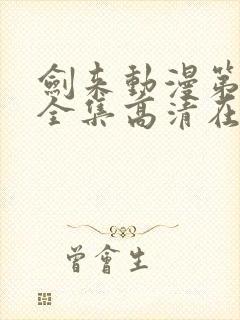 劍来動漫第
全集高清在
曾會生